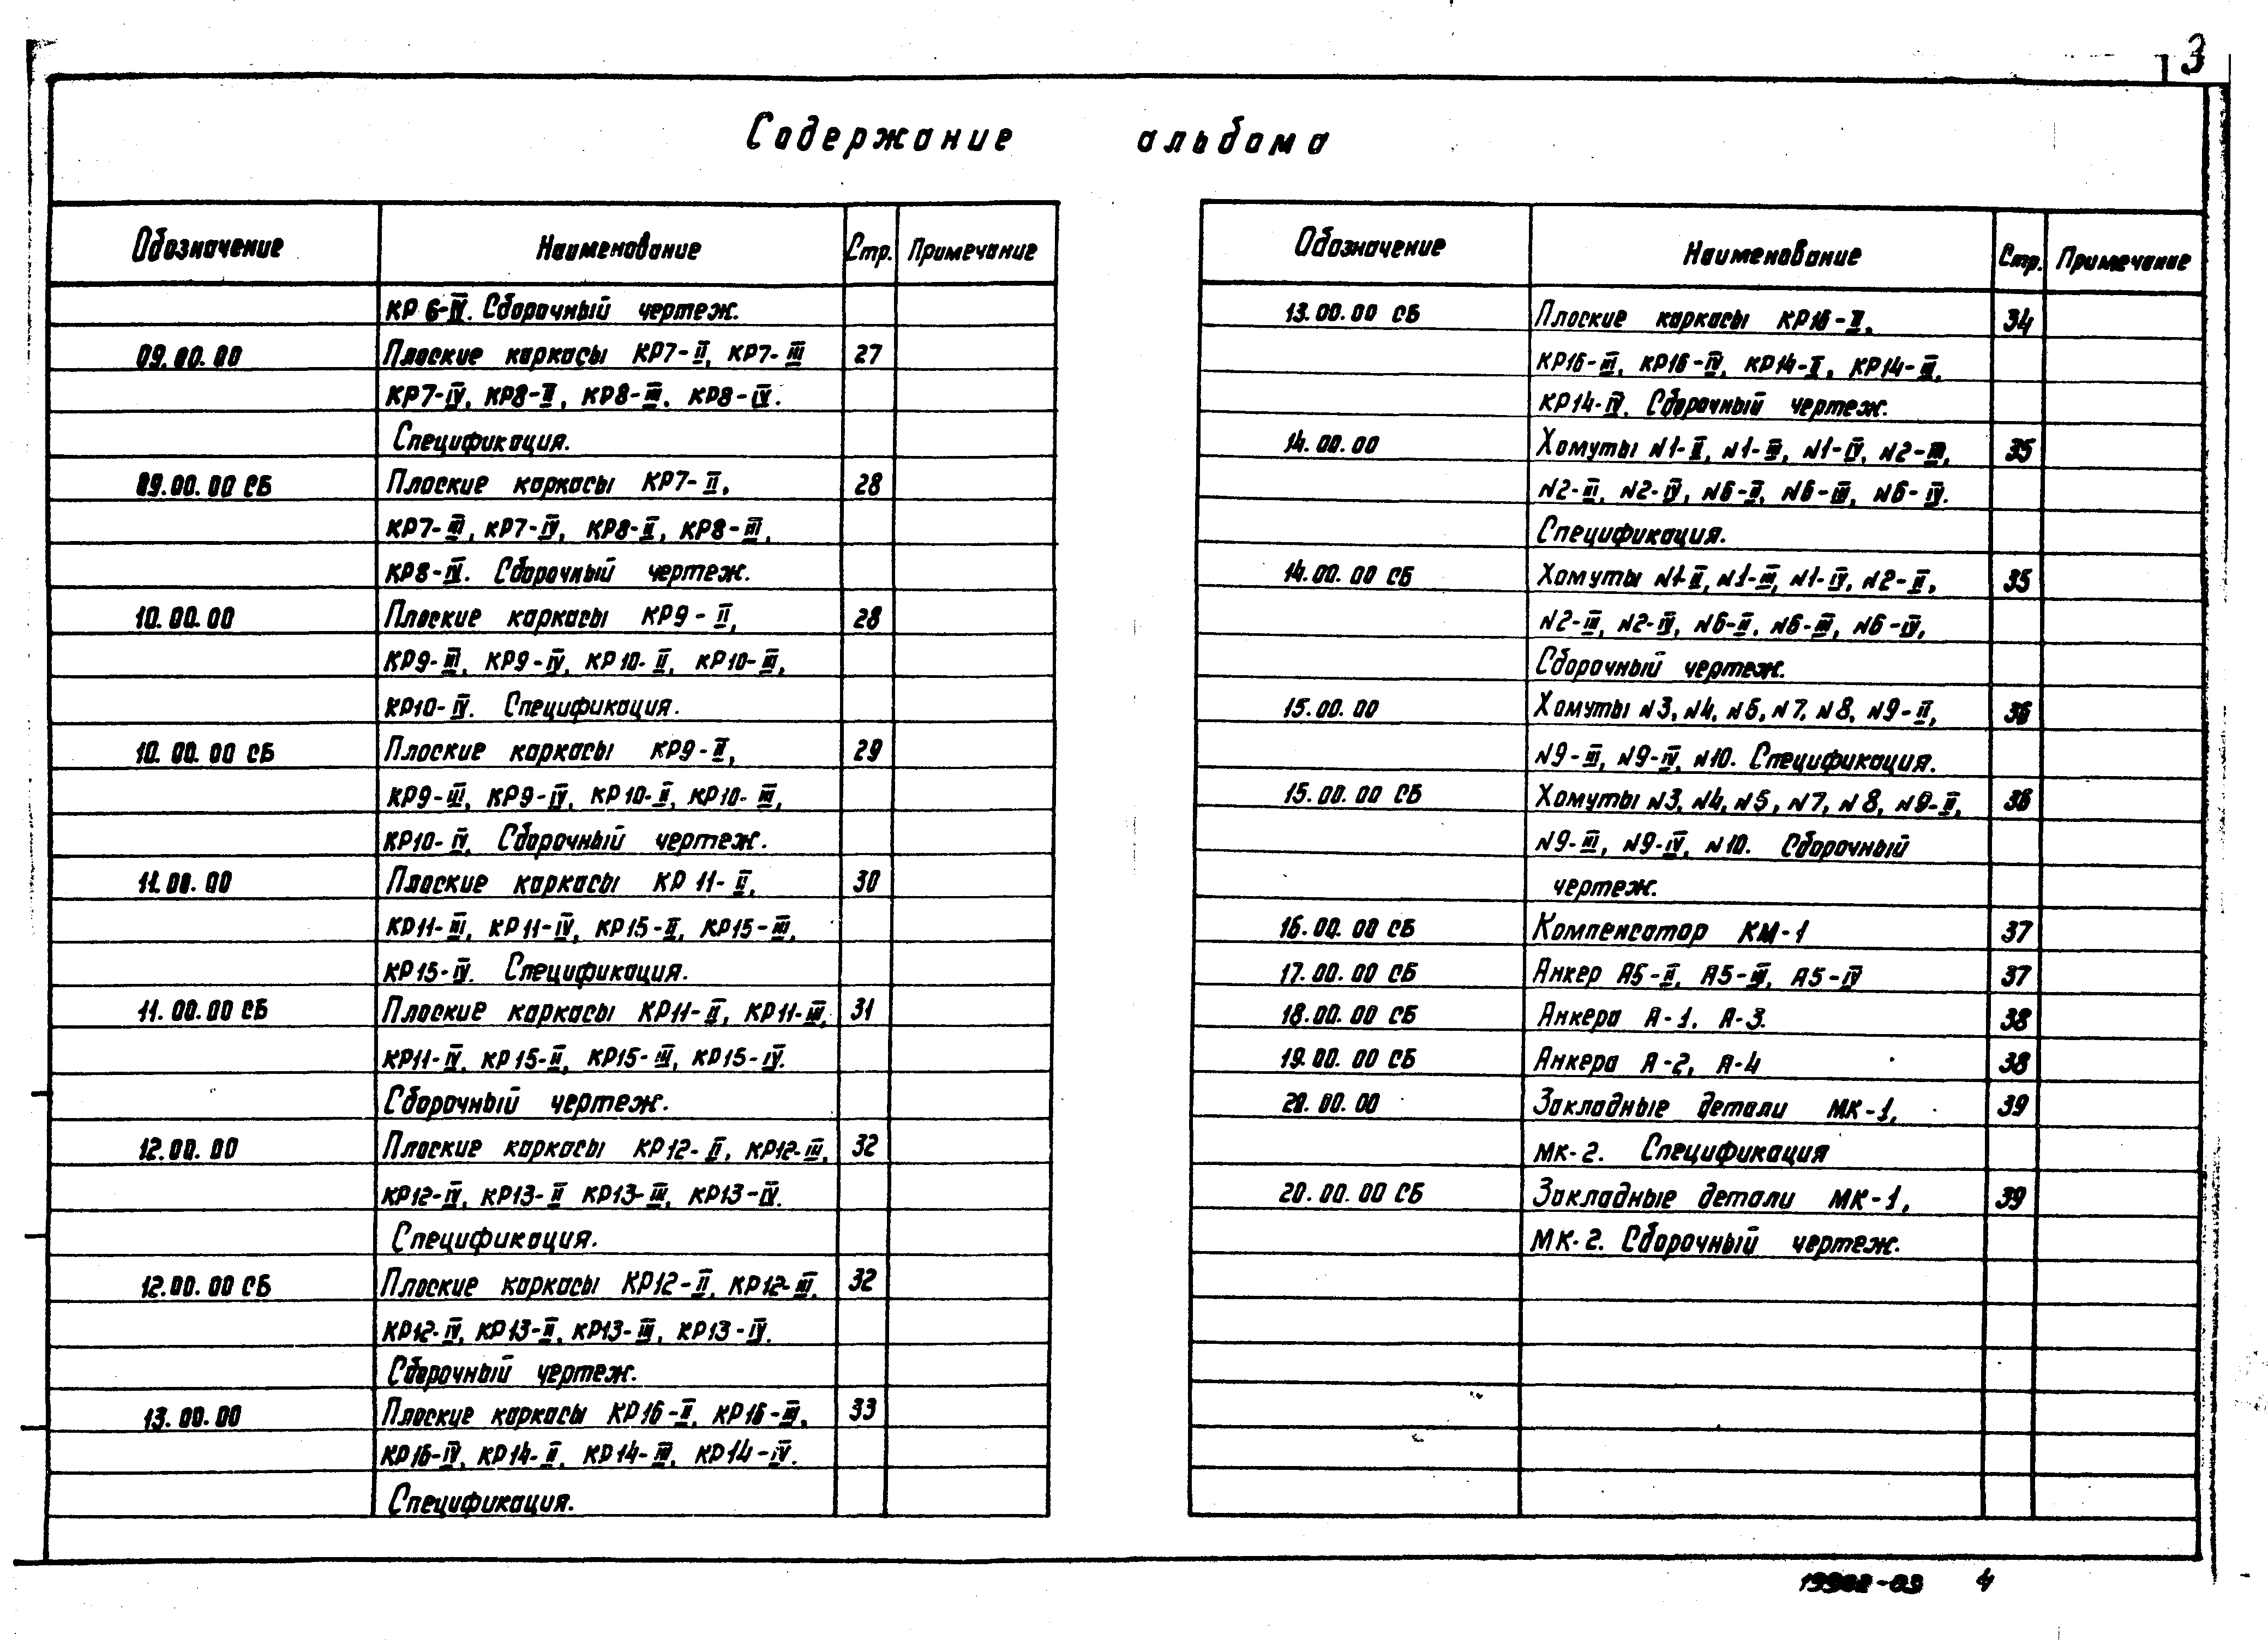 3
Содержание альбома
Обозначение Наименование Стр. Примечание
КР 6-IV. Сборочный чертеж.
09.00.00 Плоские каркасы КР7-II, КР7-III 27
КР7-IV, КР8-II, КР8-III, КР8-IV.
Спецификация.
09.00.00 СБ Плоские каркасы КР7-II, 28
КР7-III, КР7-IV, КР8-II, КР8-III,
КР8-IV. Сборочный чертеж.
10.00.00 Плоские каркасы КР9-II, 28
КР9-III, КР9-IV, КР10-II, КР10-III,
КР10-IV. Спецификация.
10.00.00 СБ Плоские каркасы КР9-II, 29
КР9-III, КР9-IV, КР10-II, КР10-III,
КР10-IV, Сборочный чертеж.
11.00.00 Плоские каркасы КР 11-II, 30
КР11-III, КР11-IV, КР15-II, КР15-III,
КР15-IV. Спецификация.
11.00.00 СБ Плоские каркасы КР11-II, КР11-III, 31
КР11-IV, КР15-II, КР15-III, КР15-IV.
Сборочный чертеж.
12.00.00 Плоские каркасы КР12-II, КР12-III, 32
КР12-IV, КР13-II КР13-III, КР13-IV.
Спецификация.
12.00.00 СБ Плоские каркасы КР12-II, КР12-III, 32
КР12-IV, КР13-II, КР13-III, КР13-IV.
Сборочный чертеж.
13.00.00 Плоские каркасы КР16-II, КР16-III, 33
КР16-IV, КР14-II, КР14-III, КР14-IV.
Спецификация.
Обозначение Наименование Стр. Примечание
13.00.00 СБ Плоские каркасы КР16-II, 34
КР16-III, КР16-IV, КР14-II, КР14-III,
КР14-IV. Сборочный чертеж.
14.00.00 Хомуты N1-II, N1-III, N1-IV, N2-III, 35
N2-III, N2-IV, N6-II, N6-III, N6-IV.
Спецификация.
14.00.00 СБ Хомуты N1-II, N1-III, N1-IV, N2-II, 35
N2-III, N2-IV, N6-II, N6-III, N6-IV,
Сборочный чертеж.
15.00.00 Хомуты N3, N4, N5, N7, N8, N9-II, 36
N9-III, N9-IV, N10. Спецификация.
15.00.00 СБ Хомуты N3, N4, N5, N7, N8, N9-II, 36
N9-III, N9-IV, N10. Сборочный
чертеж.
16.00.00 СБ Компенсатор КМ-1 37
17.00.00 СБ Анкер А5-II, А5-III, А5-IV 37
18.00.00 СБ Анкера А-1, А-3. 38
19.00.00 СБ Анкера А-2, А-4 38
20.00.00 Закладные детали МК-1, 39
МК-2. Спецификация
20.00.00 СБ Закладные детали МК-1, 39
МК-2. Сборочный чертеж.
19982-03 4